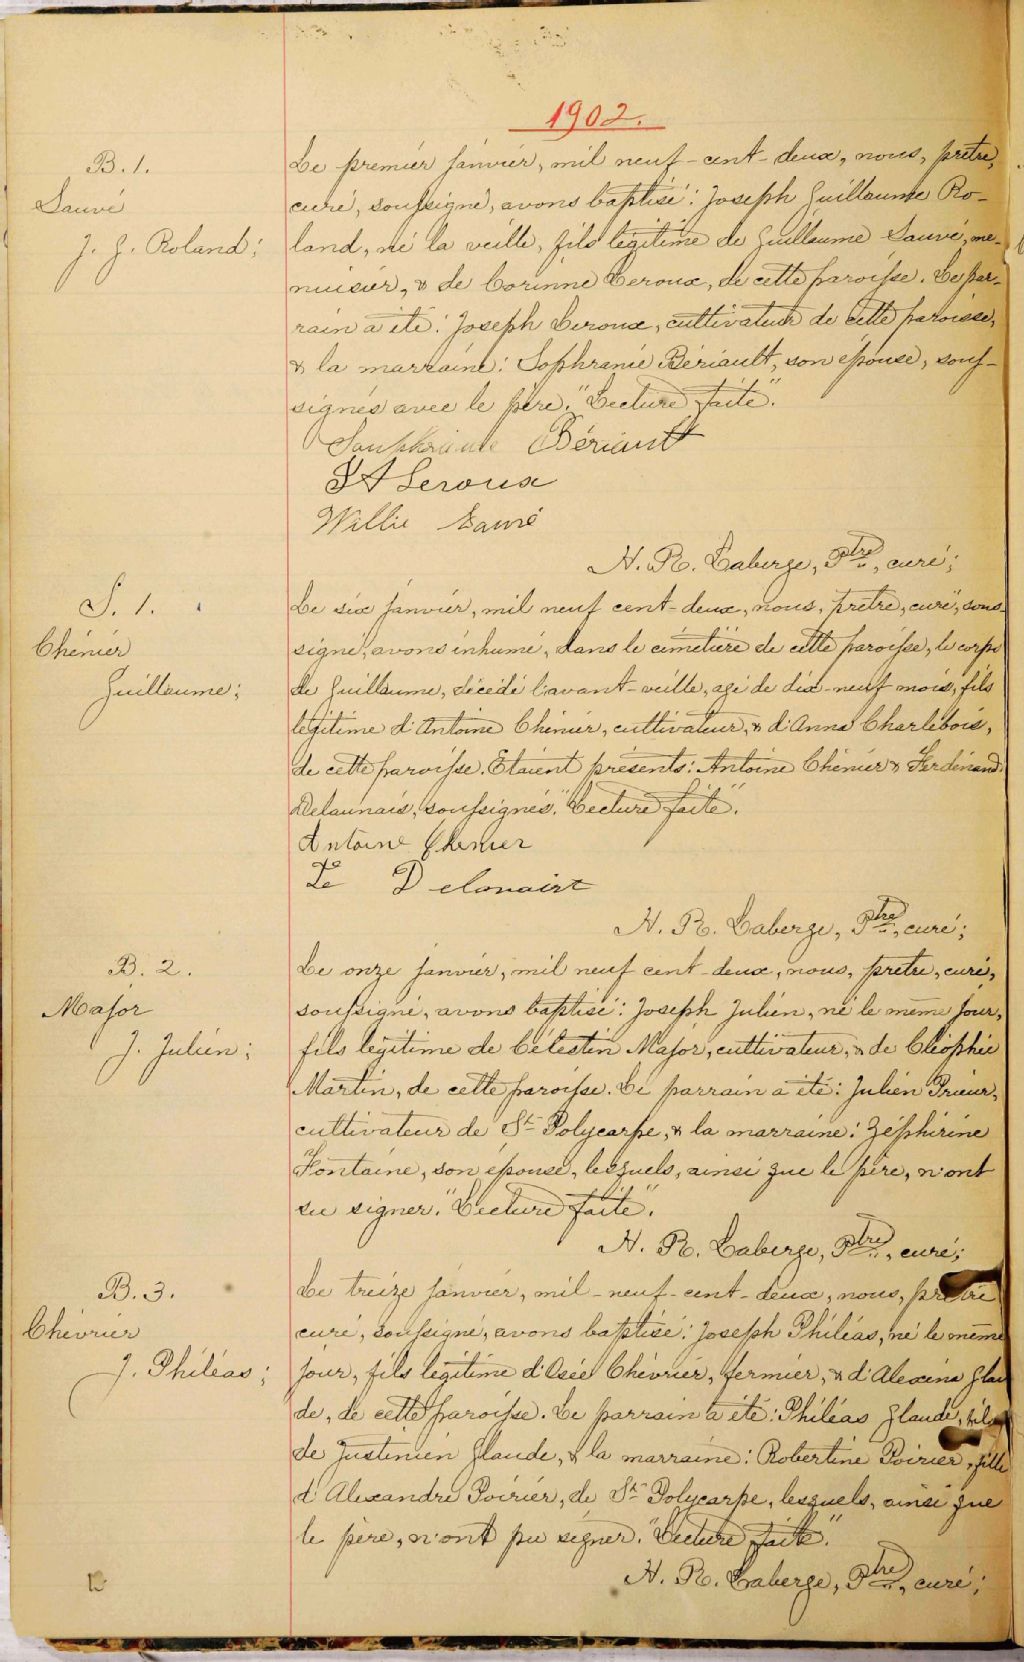 1902.
B. 1.
Sauvé
J. G. Roland;
Le premier janvier, mil neuf-cent-deux, nous, prêtre,
curé, soussigné, avons baptisé: Joseph Guillaume Ro-
land, né la veille, fils légitime de Guillaume Sauvé, me-
nuisier, & de Corinne Leroux, de cette paroisse. Le par-
rain a été: Joseph Leroux, cultivateur de cette paroisse,
& la marraine: Sophranie Bériault, son épouse, sous-
signés avec le père. "Lecture faite".
Bériault
J A Leroux
Willie Sauvé
H. R. Laberge, Ptre, curé;
S. 1.
Chénier
Guillaume;
Le six janvier, mil neuf cent-deux, nous, prêtre, curé, sous-
signé, avons inhumé, dans le cimetière de cette paroisse, le corps
de Guillaume, décédé l'avant-veille, agé de dix-neuf mois, fils
légitime d'Antoine Chénier, cultivateur, & d'Anna Charlebois,
de cette paroisse. Etaient présents: Antoine Chénier & Ferdinand
Delaunais, soussignés. "Lecture faite".
Antoine Chenier
H. R. Laberge, Ptre, curé;
B. 2.
Major
J. Julien;
Le onze janvier, mil neuf cent-deux, nous, prêtre, curé,
soussigné, avons baptisé: Joseph Julien, né le même jour,
fils légitime de Célestin Major, cultivateur, & de Cléophée
Martin, de cette paroisse. Le parrain a été: Julien Prieur,
cultivateur de St Polycarpe, & la marraine: Zéphirine
Fontaine, son épouse, lesquels, ainsi que le père, n'ont
su signer. "Lecture faite".
H. R. Laberge, Ptre, curé;
B. 3.
Chévrier
J. Philéas;
Le treize janvier, mil-neuf-cent-deux, nous, prêtre
curé, soussigné, avons baptisé: Joseph Philéas, né le même
jour, fils légitime d'Osée Chévrier, fermier, & d'Alexina Glau
de, de cette paroisse. Le parrain a été: Philéas Glaude, fils
de Justinien Glaude, & la marraine: Robertine Poirier, fille
d'Alexandre Poirier, de St Polycarpe, lesquels, ainsi que
le père, n'ont pu signer. "Lecture faite."
H. R. Laberge, Ptre, curé;